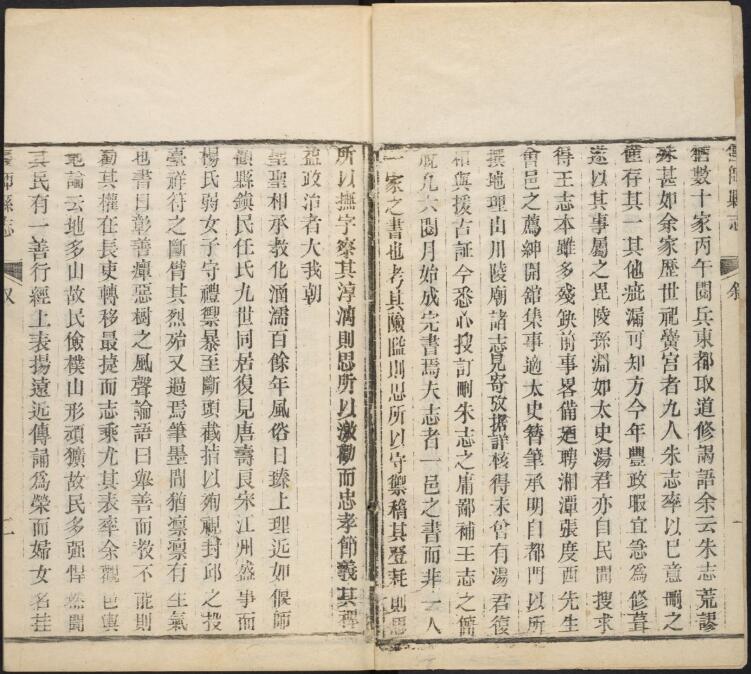 偃師縣志
敘
一
舊數十家丙午閱兵東都取道修謁語余云朱志荒謬
殊甚如余家歷世祀黌宮者九人朱志率以己意刪之
僅存其一其他疵漏可知方今年豐政暇宜急為修葺
遂以其事屬之毘陵孫淵如太史湯君亦自民間搜求
得王志本雖多殘缺前事畧備廼聘湘潭張度西先生
會邑之薦紳開舘集事適太史簪筆承明自都門以所
撰地理山川陵廟諸志見寄攷據詳核得未曾有湯君復
相與援古証今悉心搜訂刪朱志之庸鄙補王志之簡
畧凡六閱月始成完書焉夫志者一邑之書而非一人
一家之書也考其險隘則思所以守禦稽其登耗則思
所以撫字察其淳漓則思所以激勸而忠孝節義其裨
益政治者大我朝
聖聖相承教化涵濡百餘年風俗日臻上理近如偃師
顧縣鎮民任氏九世同居復見唐壽良宋江州盛事而
楊氏弱女子守禮禦暴至斷頭截指以殉視封邱之投
臺祥符之斷臂其烈殆又過焉筆墨間猶凛凛有生氣
也書曰彰善癉惡樹之風聲論語曰舉善而教不能則
勸其權在長吏轉移最捷而志乘尤其表率余觀邑輿
地論云地多山故民儉樸山形頑獷故民多强悍然聞
其民有一善行經上表揚遠近傳誦為榮而婦女名挂
偃師縣志
敘
二